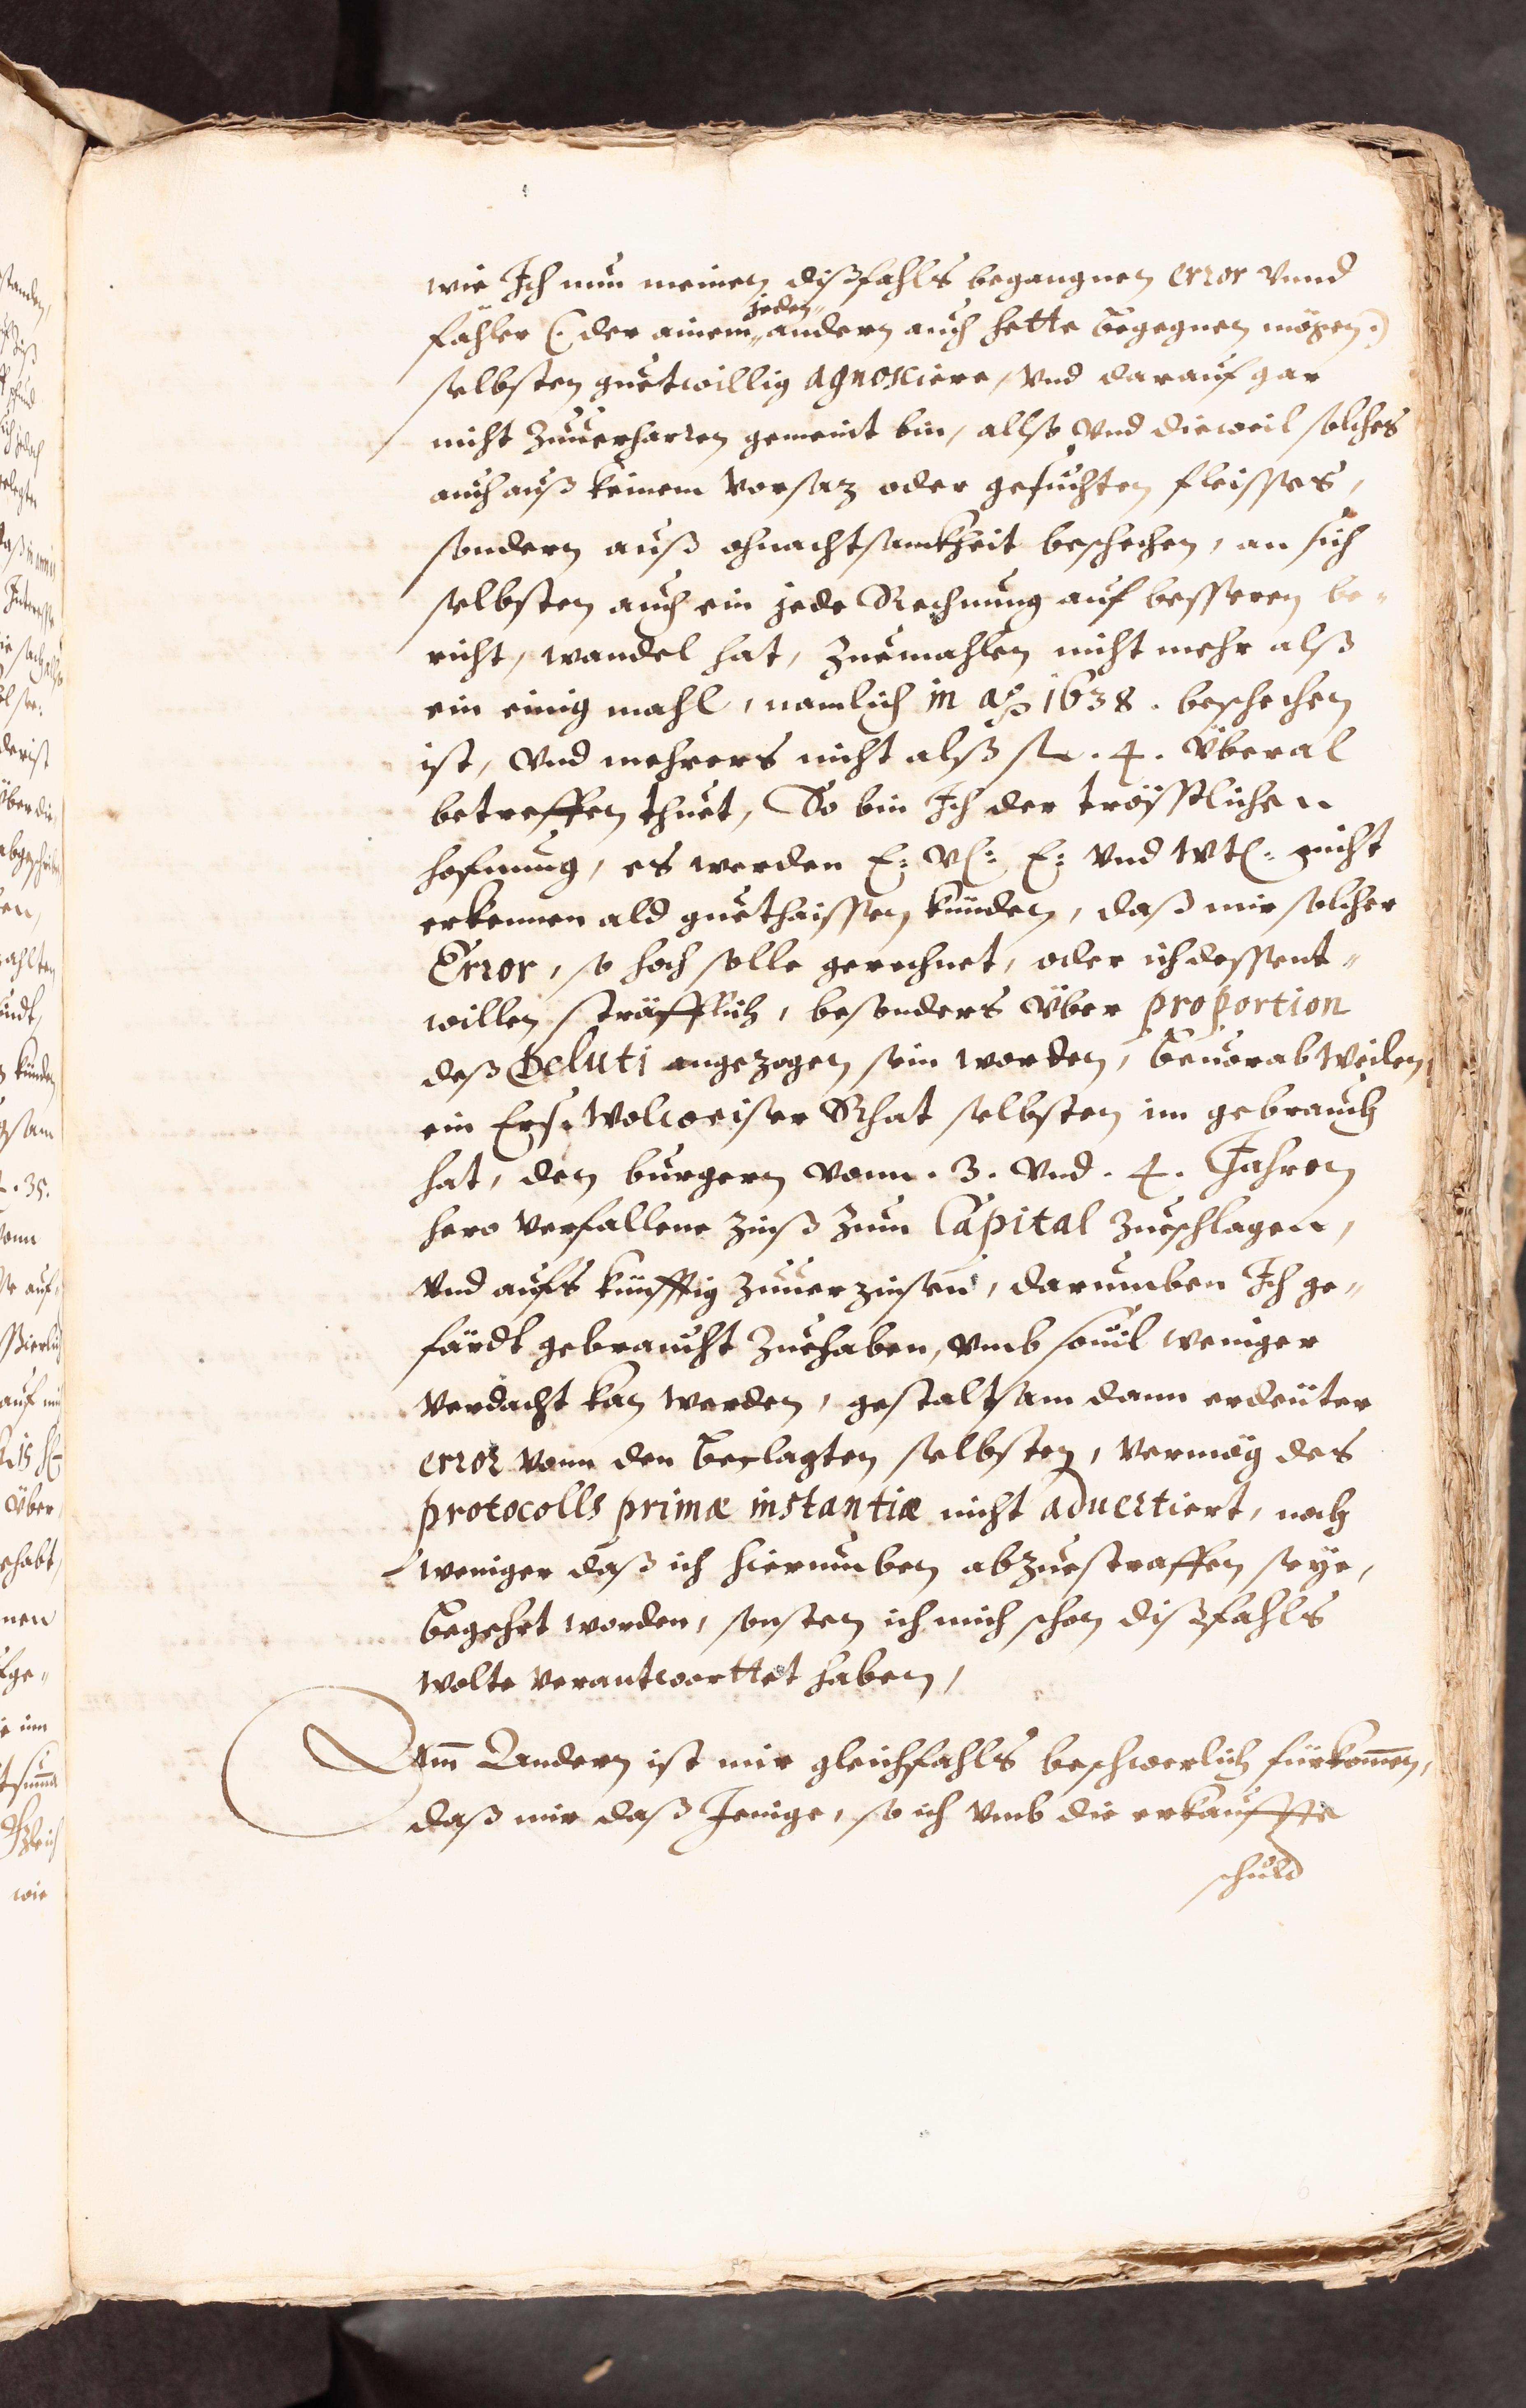 wie Ich nun meinen dißfahls begangnen error vnnd
jeden"
fähler (: der ainem" andern auch hette begegnen mögen :)
selbsten guetwillig agnosciere, vnd darauf gar
nicht zuuerharren gemeint bin, allso vnd dieweil solches
auch auß keinem vorsaz oder gesuchten fleisses,
sondern auß ohnachtsamkheit beschechen, an sich
selbsten auch ein jede Rechnung auf besseren be-
richt, wandel hat, zuemahlen nicht mehr alß
ein einig mahl, namlich in aõ 1638. beschechen
ist, vnd mehrers nicht alß fl. 4. überal
betreffen thuet, So bin Ich der tröstlichen
hofnung, es werden E: V: E: vnd Wt: nicht
erkennen ald guethaissen künden, daß mir solcher
Error, so hoch solle gerechnet, oder ich dessent-
willen sträfflich, besonders über proportion
deß Deluti angezogen sein worden, beuorab weilen
ein Ers: Wolweiser Rhat selbsten im gebrauch
hat, den burgern vonn .3. vnd .4. Jahren
hero verfallene zinß zum Capital zueschlagen,
vnd aufs künfftig zuuerzinsen, darumben Ich ge-
färdt gebraucht zuehaben, vmb souil weniger
verdacht kan werden, gestaltsam dann erdeüter
error vonn den beclagten selbsten, vermög des
protocolls primæ instantiæ nicht aduertiert, noch
weniger daß ich hierumben abzuestraffen seye,
begehrt worden, sonsten ich mich schon dißfahls
wolte verantworttet haben,
Zum Andern ist mir gleichfahls beschwerlich fürkom̄en,
daß mir daß Jenige, so ich vmb die erkauffte
schuld